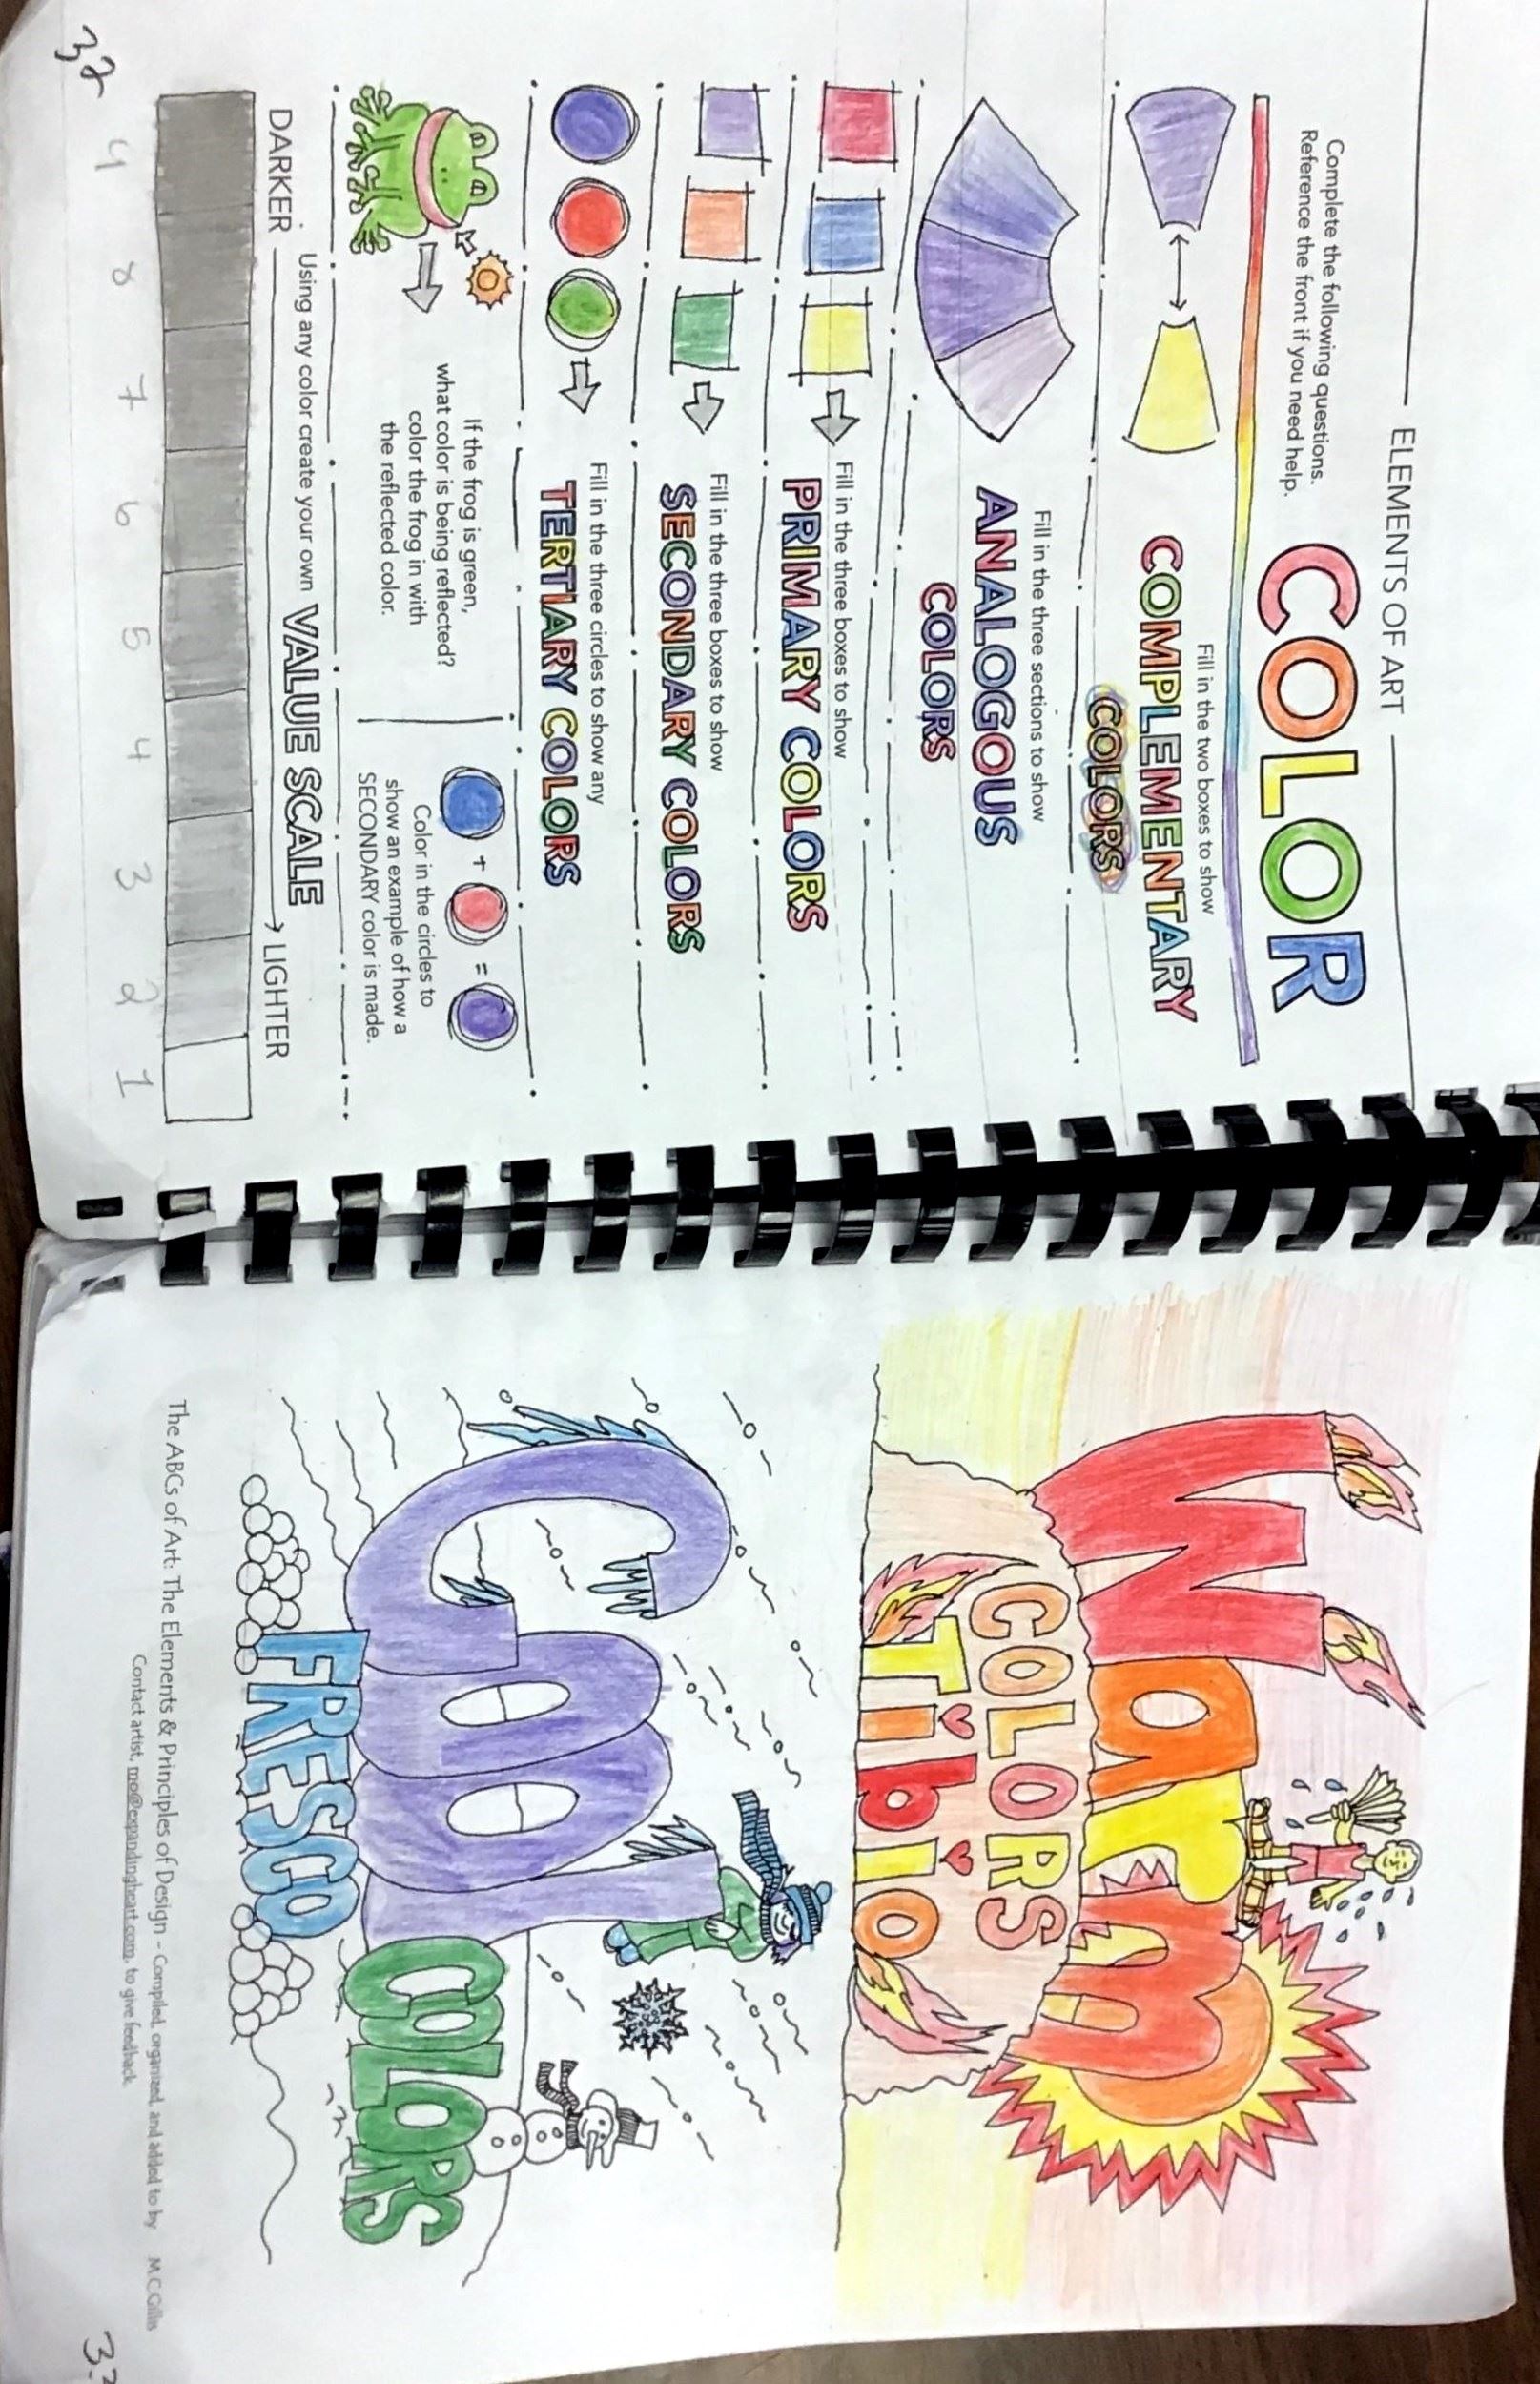 ELEMENTS OF ART
Complete the following questions.
Reference the front if you need help.
COLOR
Fill in the two boxes to show
COMPLEMENTARY
COLORS
Fill in the three sections to show
ANALOGOUS
COLORS
Fill in the three boxes to show
PRIMARY COLORS
Fill in the three boxes to show
SECONDARY COLORS
Fill in the three circles to show any
TERTIARY COLORS
If the frog is green,
what color is being reflected?
color the frog in with
the reflected color.
+ =
Color in the circles to
show an example of how a
SECONDARY color is made.
Using any color create your own VALUE SCALE
DARKER LIGHTER
9 8 7 6 5 4 3 2 1
32
Warm
COLORS
Tibio
Cool
FRESCO
COLORS
The ABCs of Art: The Elements & Principles of Design - Compiled, organized, and added to by M C Gillis
Contact artist, mo@expandingheart.com, to give feedback.
33